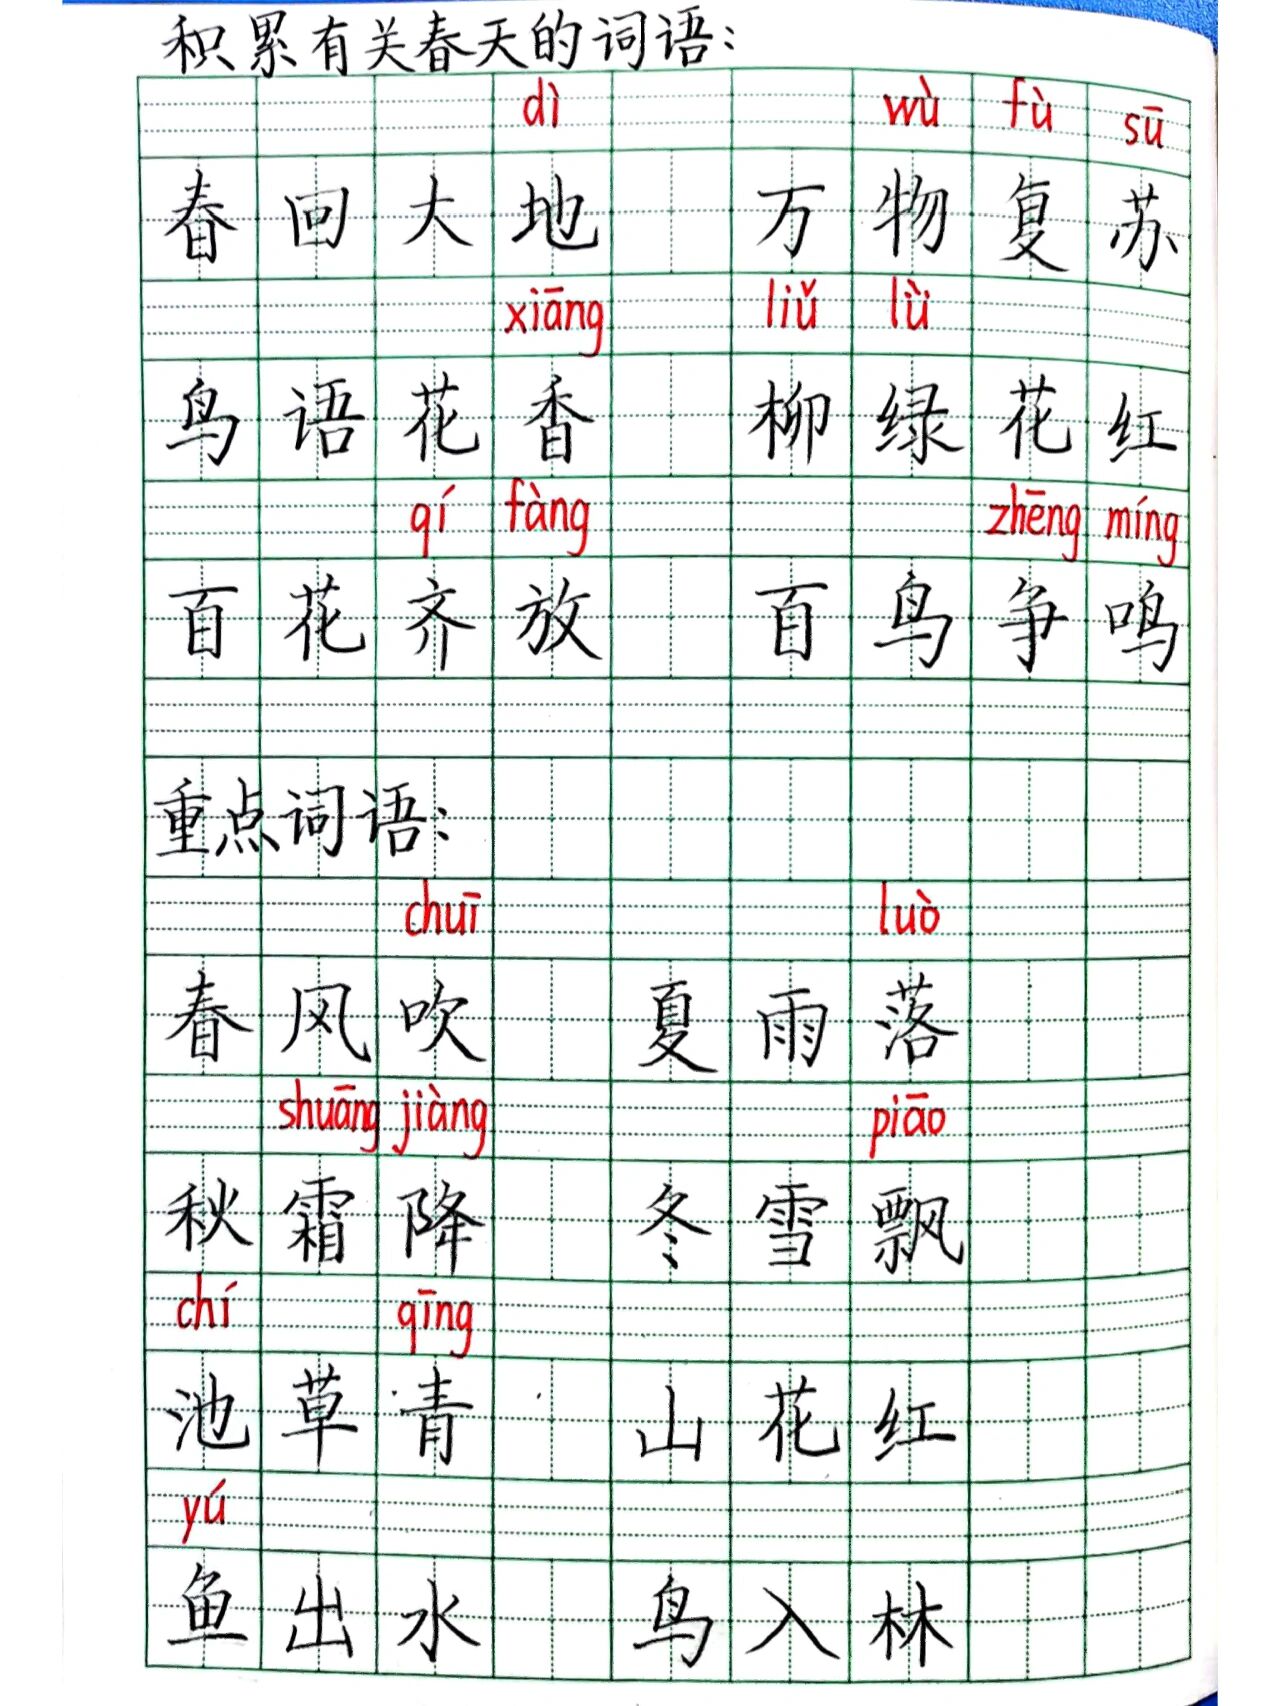 积累有关春天的词语：
dì wù fù sū
春回大地 万物复苏
xiāng liǔ lǜ
鸟语花香 柳绿花红
qí fàng zhēng míng
百花齐放 百鸟争鸣
重点词语：
chuī luò
春风吹 夏雨落
shuāng jiàng piāo
秋霜降 冬雪飘
chí qīng
池草青 山花红
yú
鱼出水 鸟入林